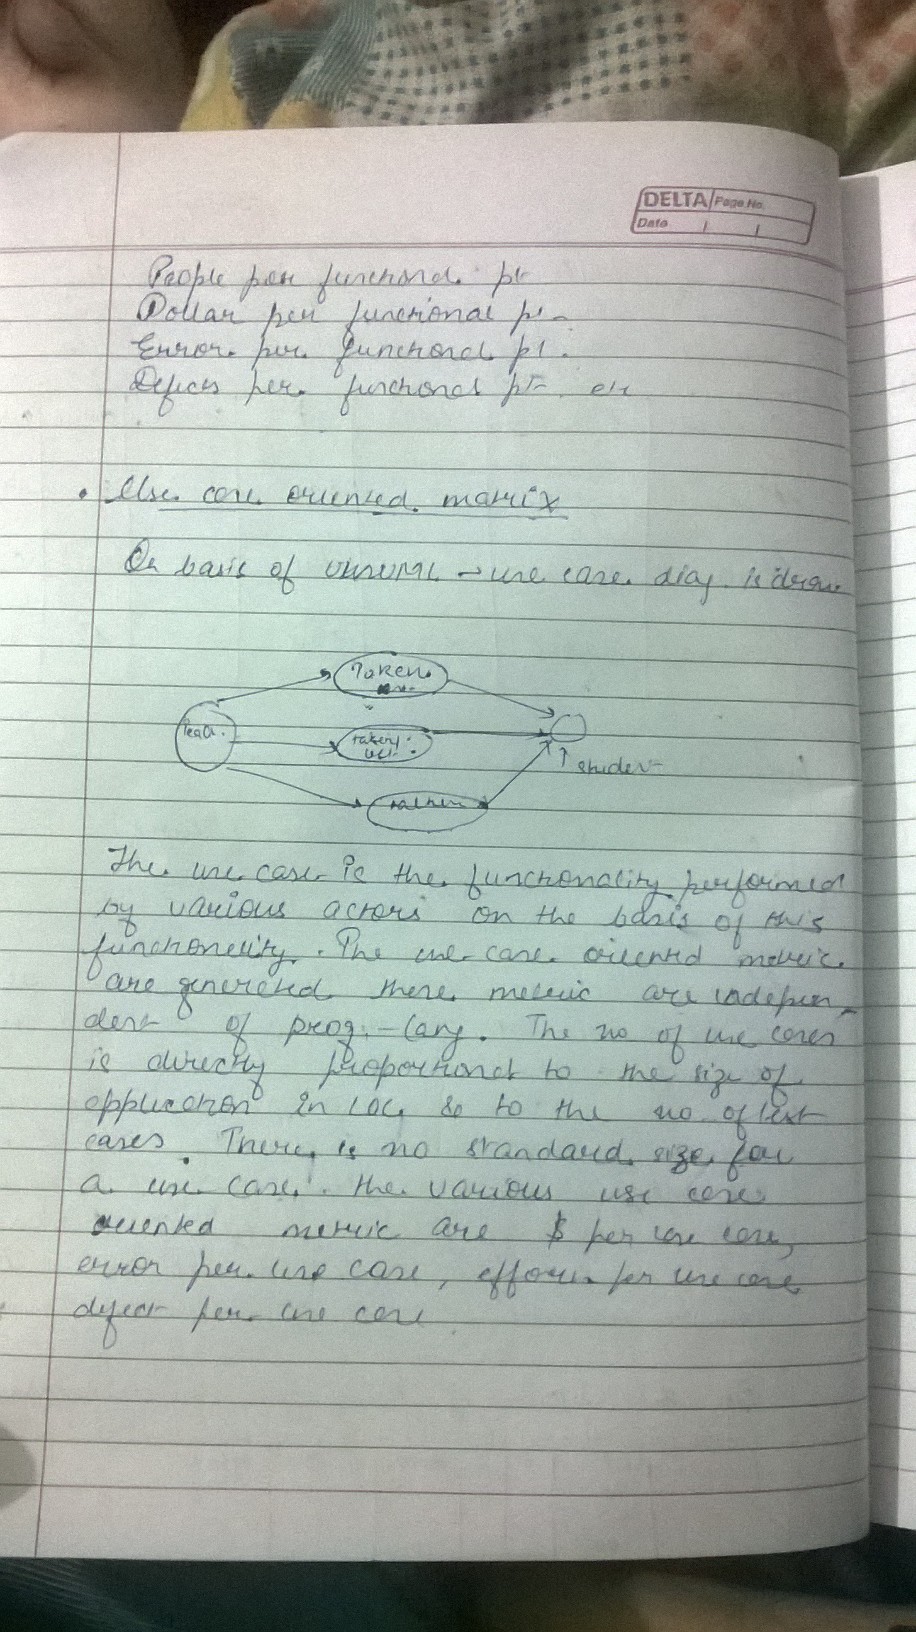 DELTA Page No.
Date
People per functional pt
Dollar per functional pt.
Error per functional pt.
Defects per functional pt. etc
. Use case oriented matrix
On basis of UML → use case diag. is draw
Taken
Teach.
student
The use case is the functionality performed
by various actors on the basis of this
functionality. The use case oriented metric
are generated these metric are indepen
dent of prog. lang. The no of use cases
is directly proportional to the size of
application in LOC & to the no of test
cases. There is no standard size for
a use case. the various use case
oriented metric are $ per use case,
error per use case, effort per use case
defect per use case